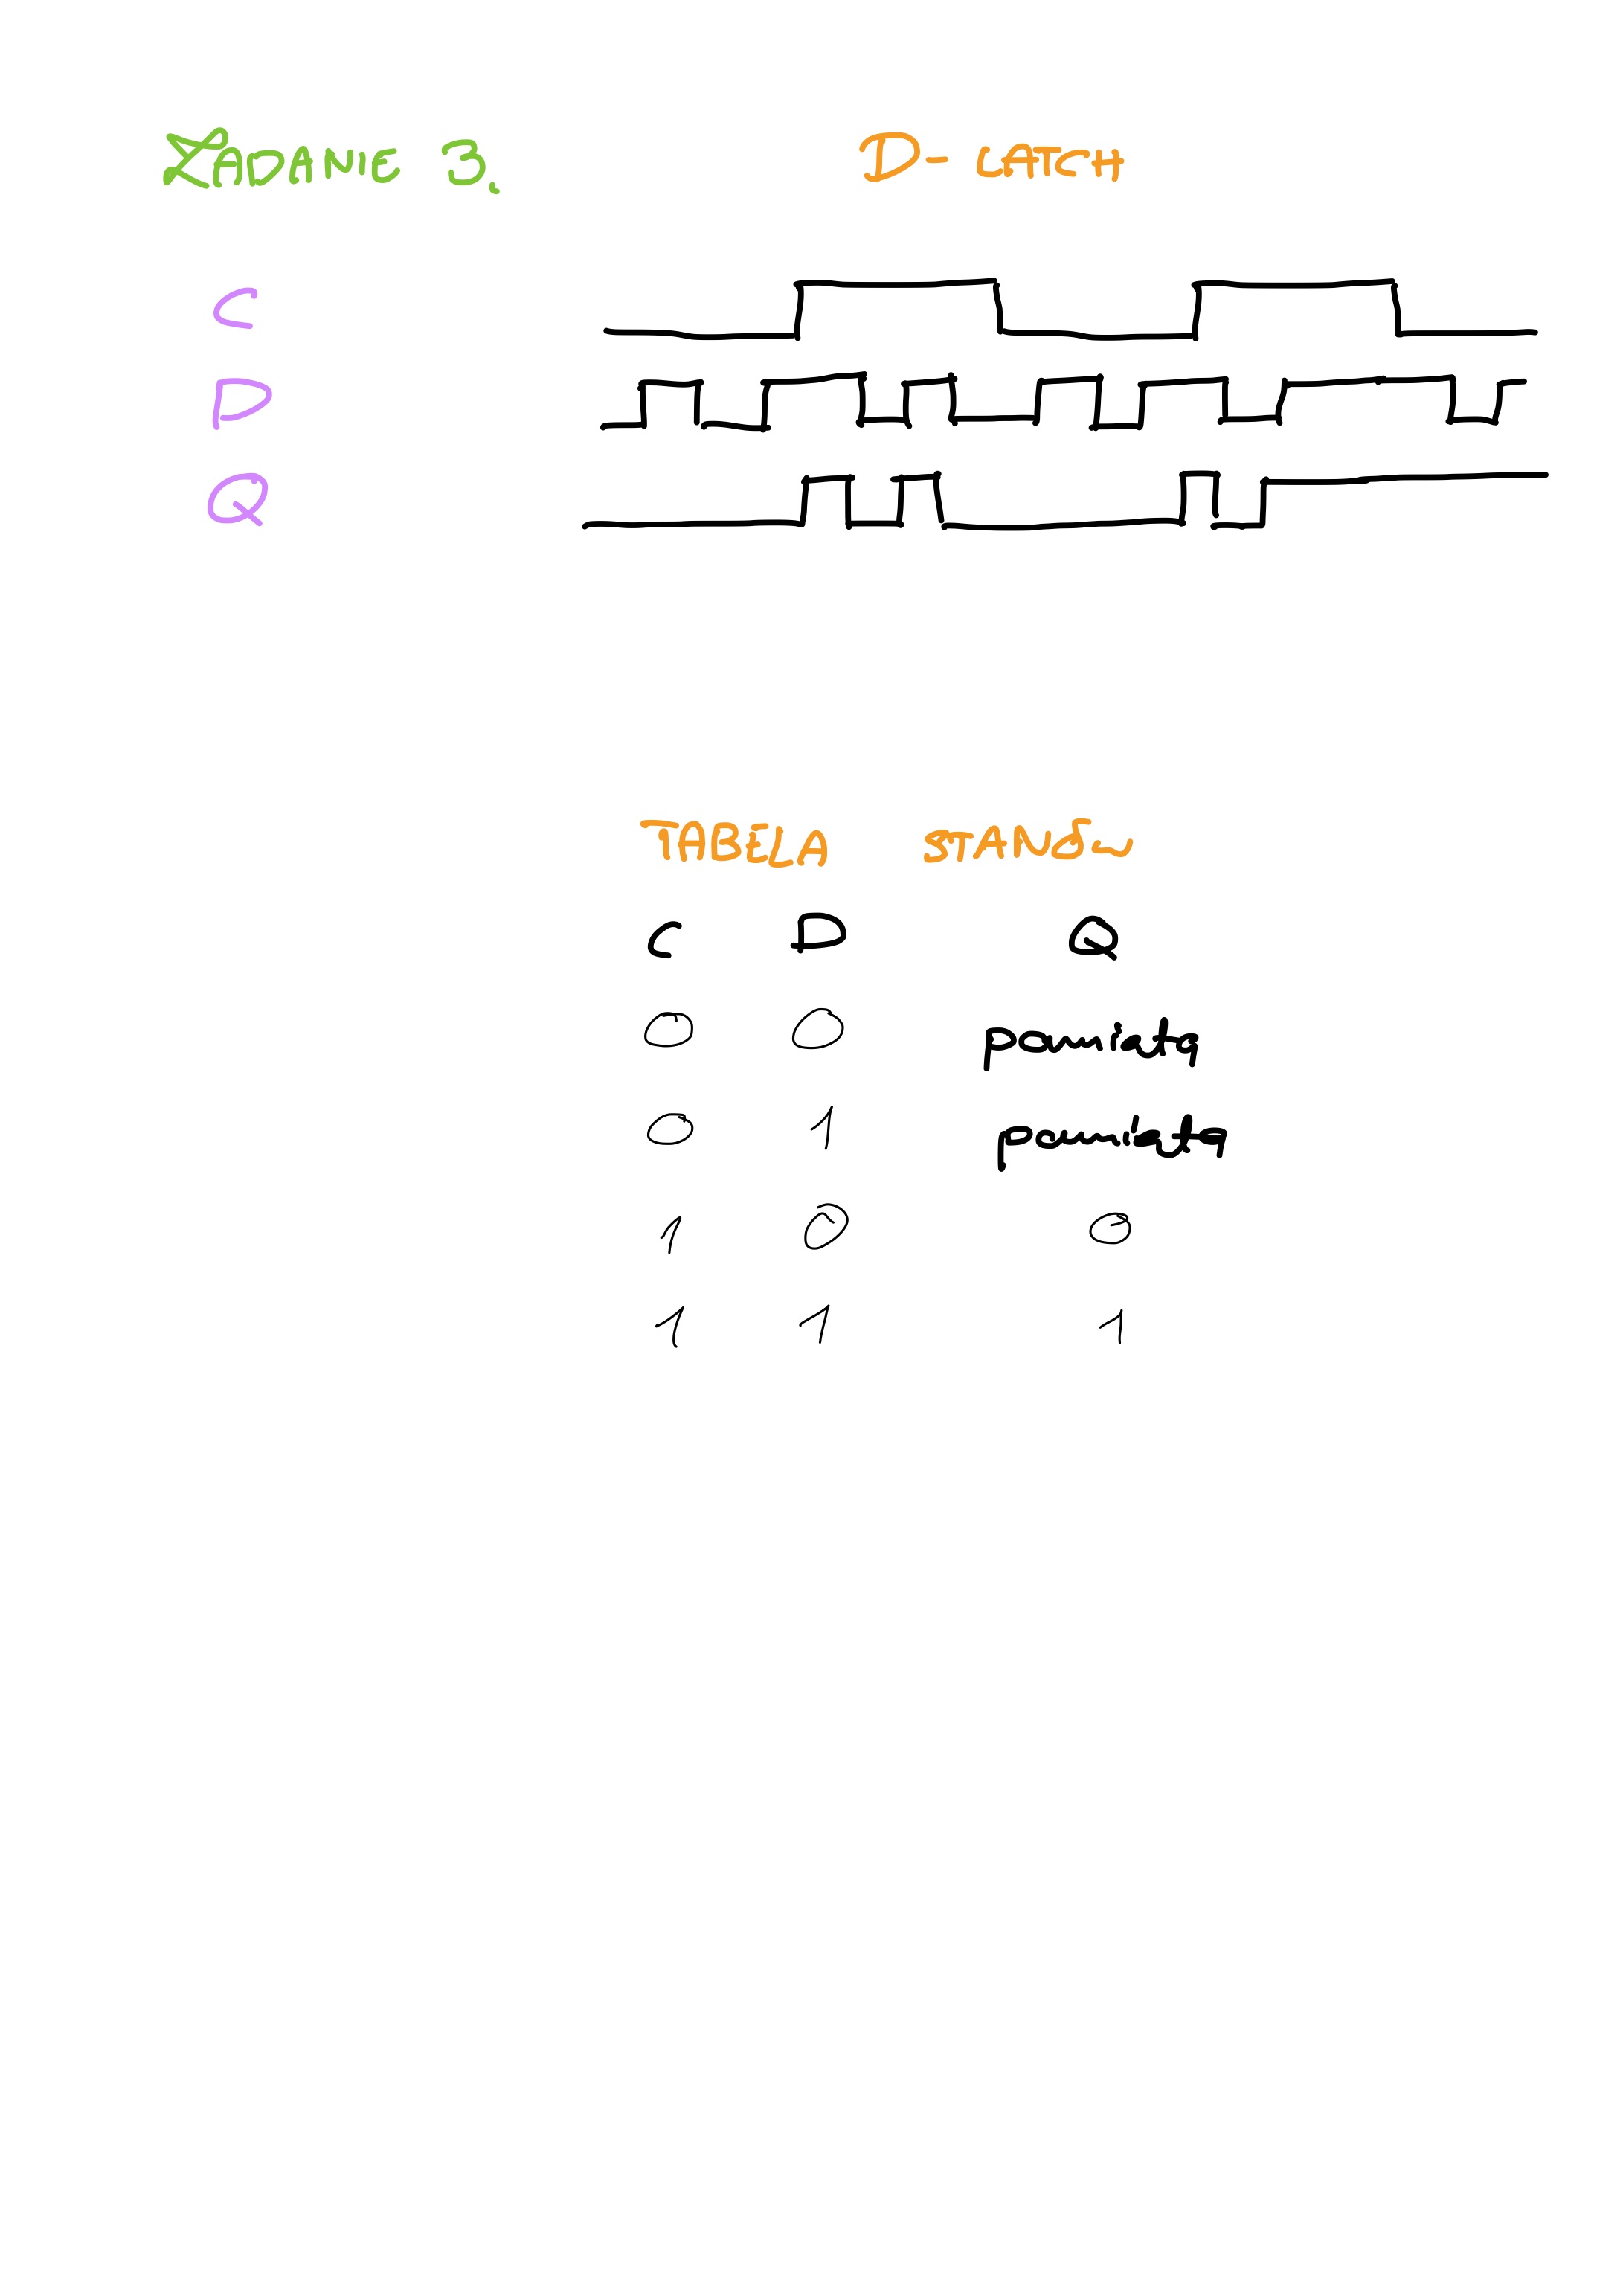 ZADANE 3. D-LATCH
C
D
Q
TABELA STANÓW
C D Q
0 0 pamięta
0 1 pamięta
1 0 0
1 1 1